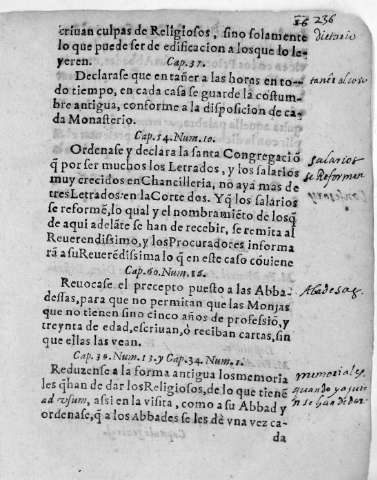 236
criuan culpas de Religiosos, sino solamente
lo que puede ser de edificacion a losque lo le-
yeren.
Cap. 37.
Declarase que en tañer a las horas en to-
do tiempo, en cada casa se guarde la costum-
bre antigua, conforme a la disposicion de ca-
da Monasterio.
Cap. 54. Num. 10.
Ordenase y declara la santa Congregaciõ
q̃ por ser muchos los Letrados, y los salarios
muy crecidos en Chancilleria, no aya mas de
tres Letrados: en la Corte dos. Y q̃ los salarios
se reformẽ, lo qual y el nombramiẽto de losq̃
de aqui adelãte se han de recebir, se remita al
Reuerendissimo, y los Procuradores informa
rã a su Reuerẽdissima lo q̃ en este caso cõuiene
Cap. 60. Num. 26.
Reuocase el precepto puesto a las Abba-
dessas, para que no permitan que las Monjas
que no tienen sino cinco años de professiõ, y
treynta de edad, escriuan, ò reciban cartas, sin
que ellas las vean.
Cap. 30. Num. 13. y Cap. 34. Num. 1.
Reduzense a la forma antigua losmemoria
les q̃han de dar los Religiosos, de lo que tienẽ
ad vsum, assi en la visita, como a su Abbad y
ordenase, q̃ a los Abbades se les dè vna vez ca-
da
dietario
tañer al coro
salarios
se Reforman
Abadesas.
memoriales
quando